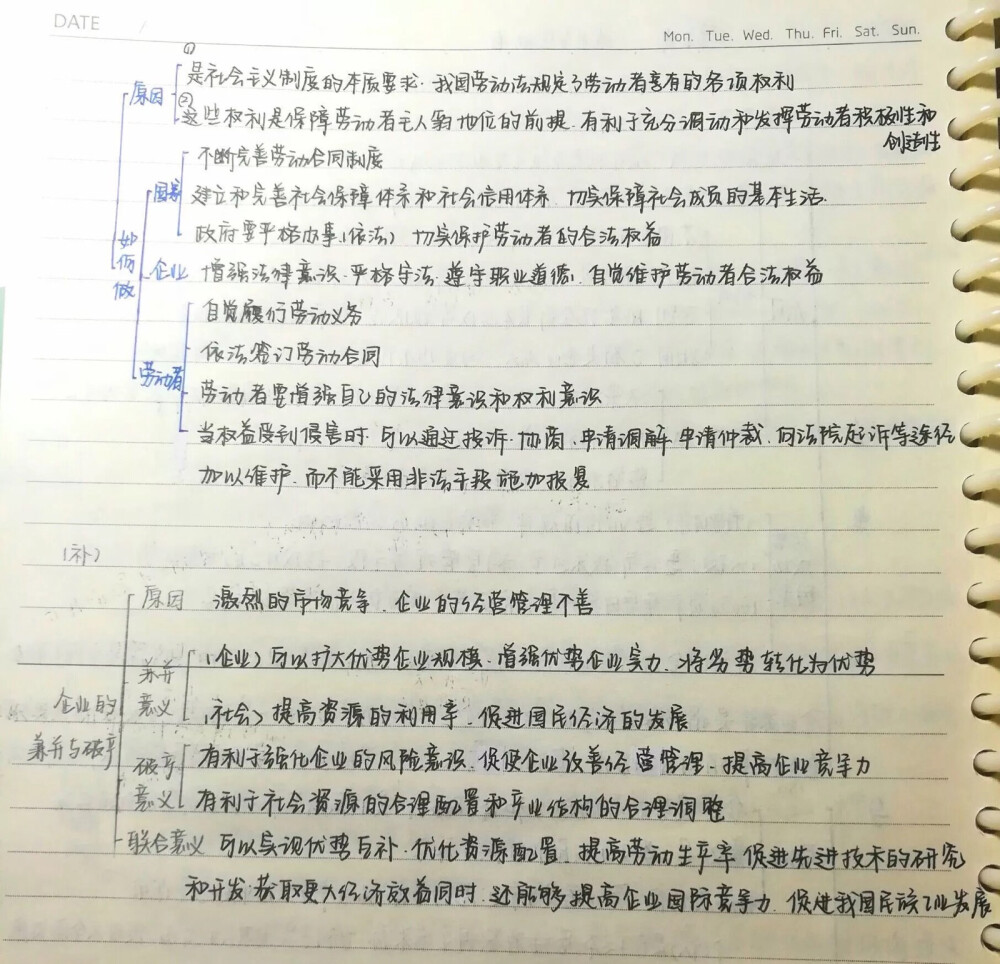 DATE /
Mon. Tue. Wed. Thu. Fri. Sat. Sun.
原因 ① 是社会主义制度的本质要求. 我国劳动法规定了劳动者享有的各项权利
② 这些权利是保障劳动者主人翁地位的前提. 有利于充分调动和发挥劳动者积极性和
创造性
如何做
国家 不断完善劳动合同制度
建立和完善社会保障体系和社会信用体系. 切实保障社会成员的基本生活.
政府要严格办事(依法) 切实保护劳动者的合法权益
企业 增强法律意识. 严格守法. 遵守职业道德. 自觉维护劳动者合法权益
劳动者 自觉履行劳动义务
依法签订劳动合同
劳动者要增强自己的法律意识和权利意识
当权益受到侵害时. 可以通过投诉. 协商. 申请调解. 申请仲裁. 向法院起诉等途径
加以维护. 而不能采用非法手段施加报复
(补)
企业的兼并与破产
原因 激烈的市场竞争. 企业的经营管理不善
兼并意义 (企业) 可以扩大优势企业规模. 增强优势企业实力. 将劣势转化为优势
(社会) 提高资源的利用率. 促进国民经济的发展
破产意义 有利于强化企业的风险意识. 促使企业改善经营管理. 提高企业竞争力
有利于社会资源的合理配置和产业结构的合理调整
联合意义 可以实现优势互补. 优化资源配置. 提高劳动生产率 促进先进技术的研究
和开发 获取更大经济效益同时. 还能够提高企业国际竞争力. 促进我国民族工业发展